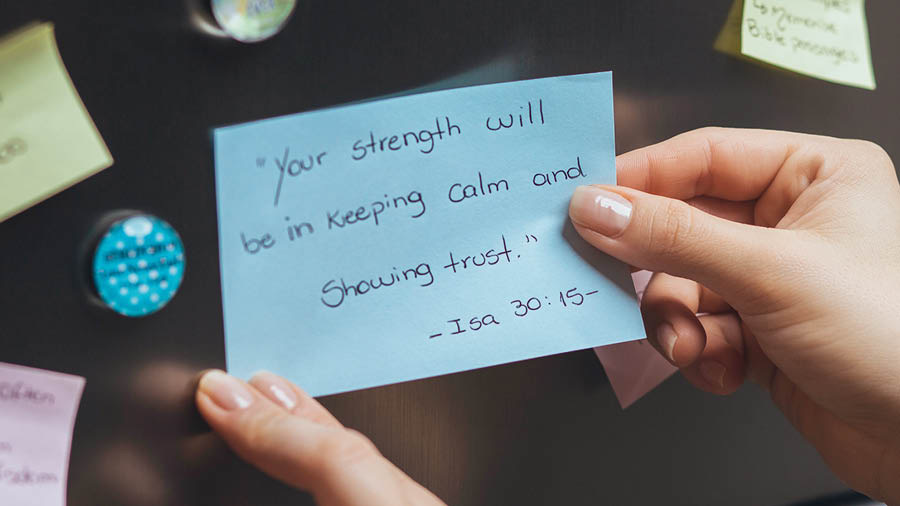 "Your strength will
be in keeping calm and
showing trust."
-Isa 30:15-
↳ Memorise
Bible passages